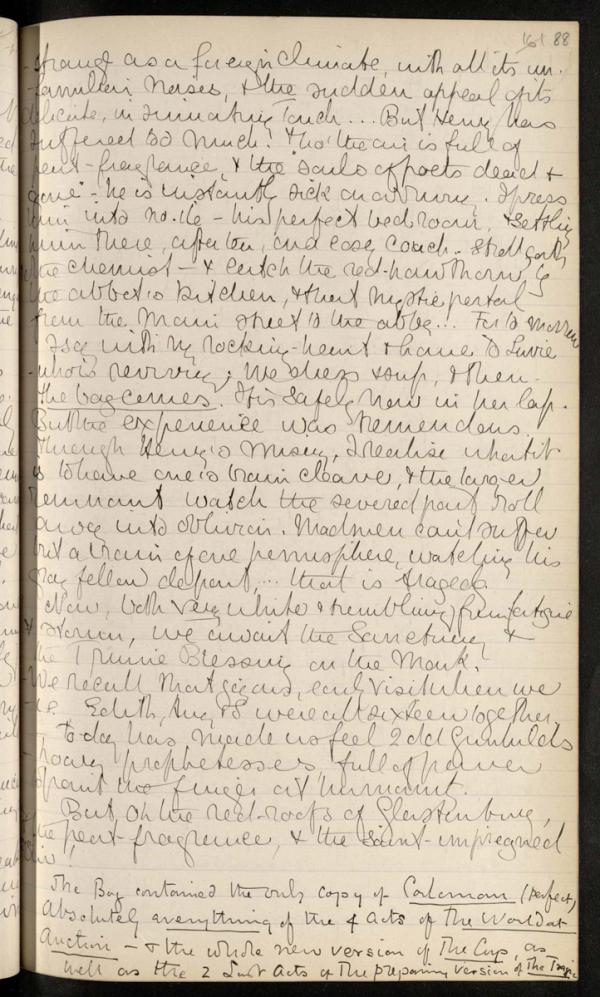 161 88
strange as a foreign climate, with all its un-
familiar noises, & the sudden appeal of its
delicate, insinuating touch... But Henry has
suffered so much! Tho' the air is full of
peat-fragrance, & the souls of poets dead &
gone - he is instantly sick on arriving. I press
him into No. - his perfect bedroom, & settling
him there, after tea, on a easy couch. Stroll forth
the chemist - & catch the red-hawthorn by
the abbot's kitchen, & that mystic portal
from the main street to the abbey... For to-morrow
I say with my rocking-heart & home to
who is reviving; we dress & sup, & then -
the bag comes. It is safely now in her lap.
But the experience was tremendous.
Through Henry's misery, I realise what it
is to have one's brain cleave, & the larger
remnant watch the severed part roll
away into oblivion. Madmen can't suffer
but a brain of one hemisphere, watching his
gay fellow depart,... that is tragedy.
Now, both very white & trembling from fatigue
& storm, we await the Sanctuary &
the Triune Blessing on the Monk.
We recall that gigans, early visit when we
i.e. Edith, Amy, & I were all sixteen together.
To-day has made us feel 2 old Gunhilds
- hoary prophetesses, full of power
& point no finger at humanity.
But, oh the red-roofs of Glastonbury,
the peat-fragrance, & the saint-impregned
air!
The Bag contained the only copy of Carloman (perfect,)
absolutely everything of the 4 acts of The World at
Auction - & the whole new version of The Cup, as
well as the 2 last Acts of the preparing version of The Tragic